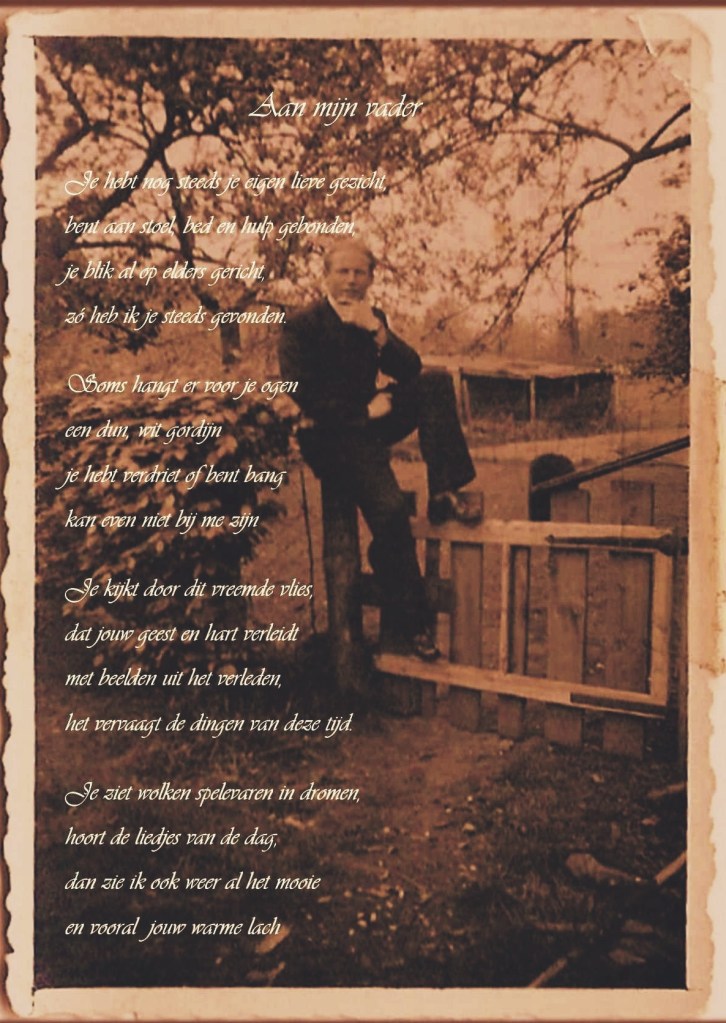 Aan mijn vader
Je hebt nog steeds je eigen lieve gezicht,
bent aan stoel, bed en hulp gebonden,
je blik al op elders gericht,
zó heb ik je steeds gevonden.
Soms hangt er voor je ogen
een dun, wit gordijn
je hebt verdriet of bent bang
kan even niet bij me zijn
Je kijkt door dit vreemde vlies,
dat jouw geest en hart verleidt
met beelden uit het verleden,
het vervaagt de dingen van deze tijd.
Je ziet wolken spelevaren in dromen,
hoort de liedjes van de dag,
dan zie ik ook weer al het mooie
en vooral jouw warme lach